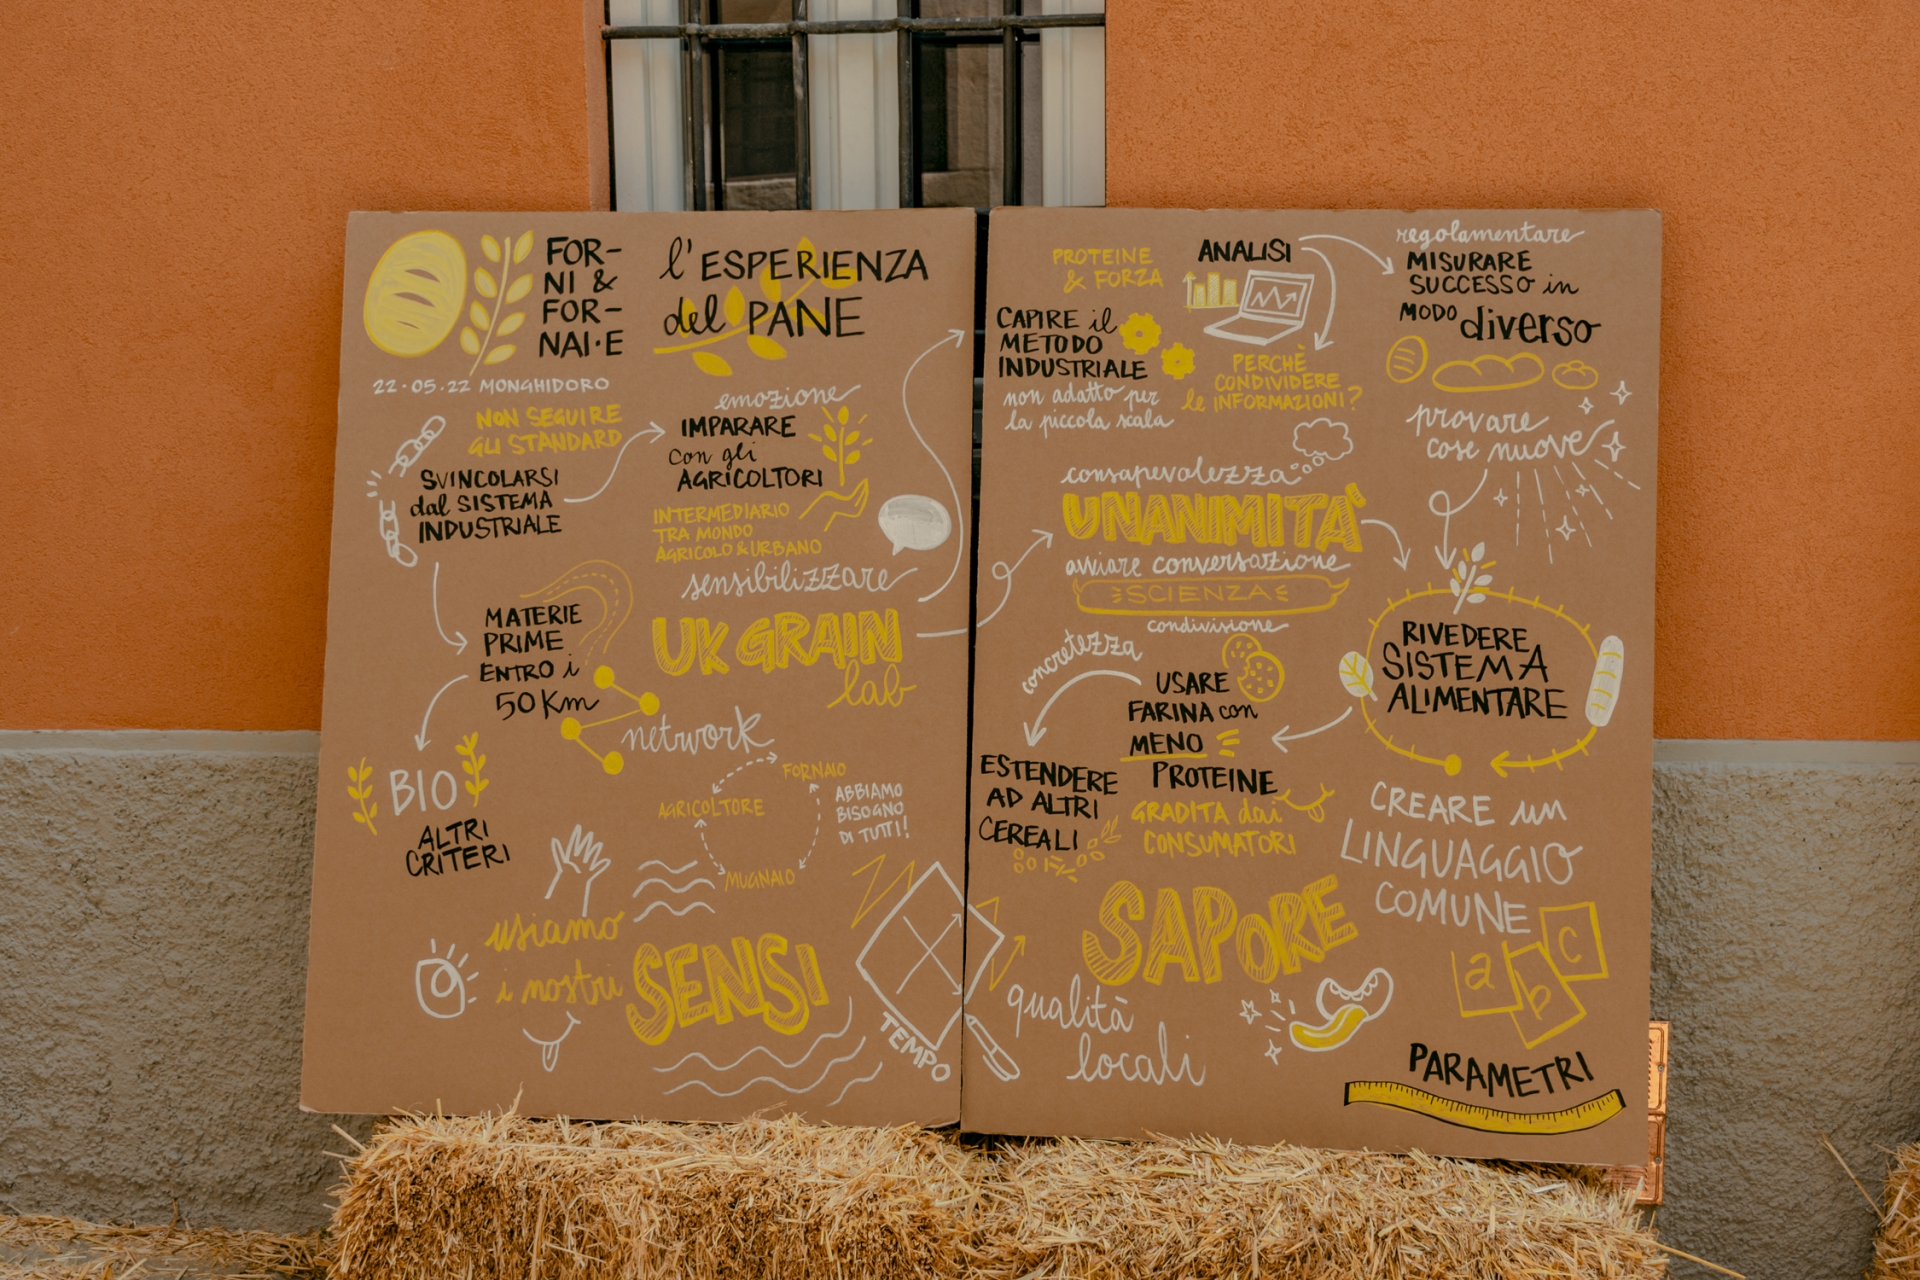 FOR-
NI &
FOR-
NAI·E
l'ESPERIENZA
del PANE
22·05·22 MONGHIDORO
NON SEGUIRE
GLI STANDARD
SVINCOLARSI
dal SISTEMA
INDUSTRIALE
emozione
IMPARARE
con gli
AGRICOLTORI
INTERMEDIARIO
TRA MONDO
AGRICOLO & URBANO
sensibilizzare
MATERIE
PRIME
ENTRO i
50 Km
UK GRAIN
lab
network
BIO
ALTRI
CRITERI
FORNAIO
AGRICOLTORE
MUGNAIO
ABBIAMO
BISOGNO
DI TUTTI!
usiamo
i nostri
SENSI
TEMPO
PROTEINE
& FORZA
ANALISI
regolamentare
MISURARE
SUCCESSO in
MODO diverso
CAPIRE il
METODO
INDUSTRIALE
non adatto per
la piccola scala
PERCHÈ
CONDIVIDERE
le INFORMAZIONI?
provare
cose nuove
consapevolezza
UNANIMITÀ
avviare conversazione
SCIENZA
condivisione
concretezza
USARE
FARINA con
MENO
PROTEINE
GRADITA dai
CONSUMATORI
ESTENDERE
AD ALTRI
CEREALI
RIVEDERE
SISTEMA
ALIMENTARE
CREARE un
LINGUAGGIO
COMUNE
a b c
SAPORE
qualità
locali
PARAMETRI